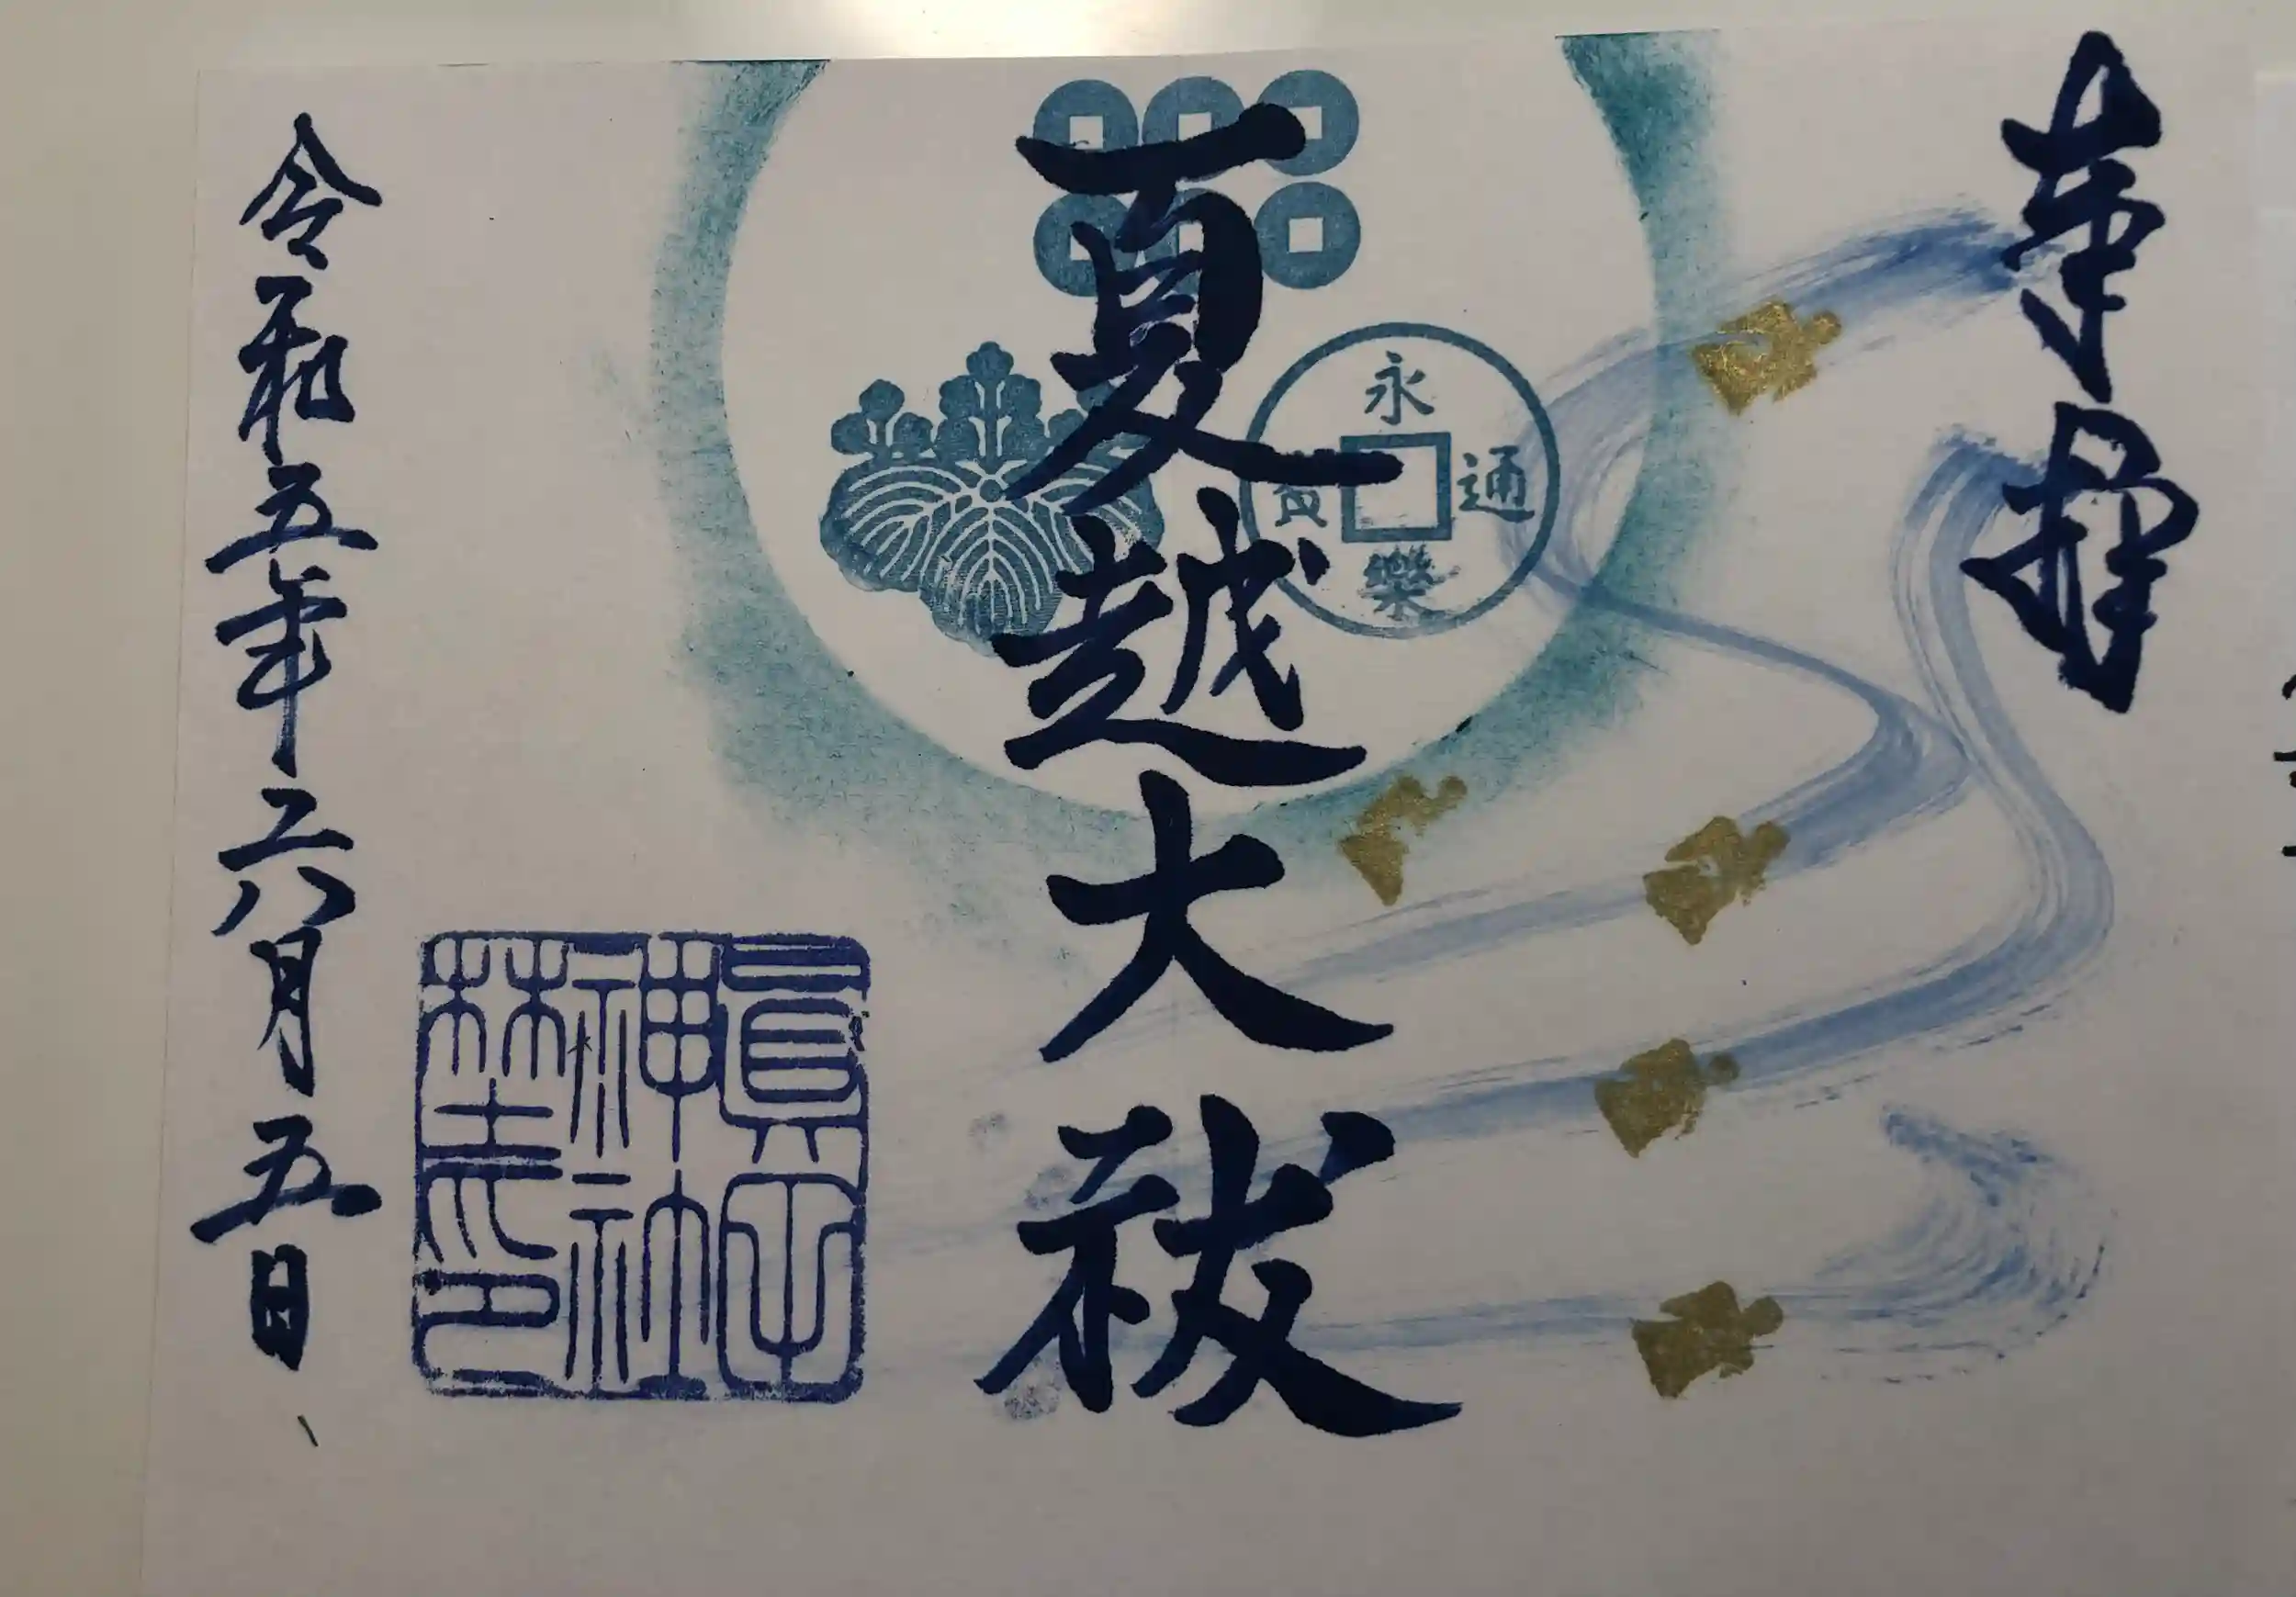 奉拝
永樂通寳
夏越大祓
眞田神社
令和五年六月五日